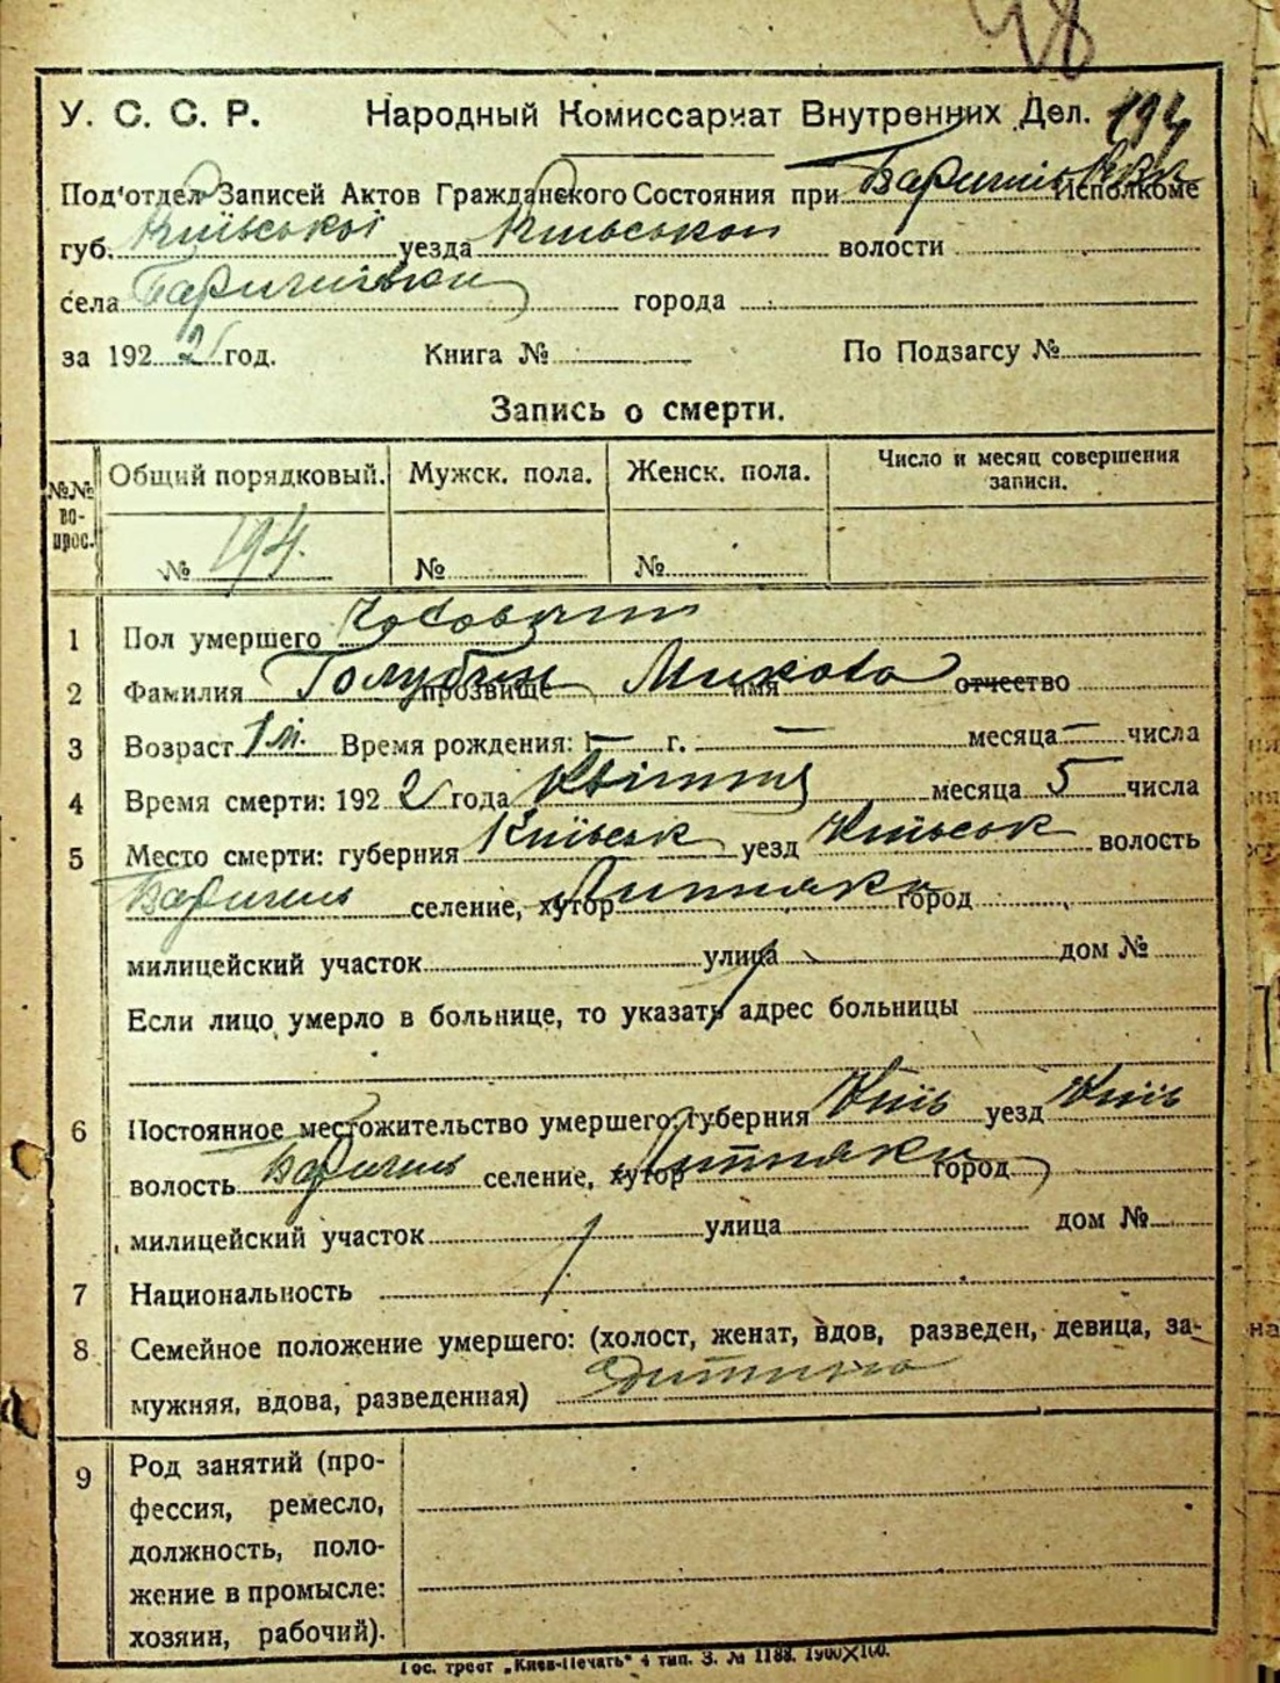 48
У. С. С. Р. Народный Комиссариат Внутренних Дел. 194
Под'отдел Записей Актов Гражданского Состояния при Исполкоме
губ. Київської уезда Київської волости
села Баришівки города
за 1922 год. Книга № По Подзагсу №
Запись о смерти.
№№ вопрос. Общий порядковый. Мужск. пола. Женск. пола. Число и месяц совершения записи.
№ 194. № №
1 Пол умершего
2 Фамилия Голубчик прозвище Микола имя отчество
3 Возраст 1 м. Время рождения: 1 — г. — месяца — числа
4 Время смерти: 1922 года Квітня месяца 5 числа
5 Место смерти: губерния Київськ уезд Київськ волость
Баришів селение, хутор Липняки город
милицейский участок улица дом №
Если лицо умерло в больнице, то указать адрес больницы
6 Постоянное местожительство умершего: губерния Київ уезд Київ
волость Баришів селение, хутор Липняки город
милицейский участок улица дом №
7 Национальность
8 Семейное положение умершего: (холост, женат, вдов, разведен, девица, за-
мужняя, вдова, разведенная) дитина
9 Род занятий (про-
фессия, ремесло,
должность, поло-
жение в промысле:
хозяин, рабочий).
Гос. трест „Киев-Печать“ 4 тип. З. № 1188. 1900X100.